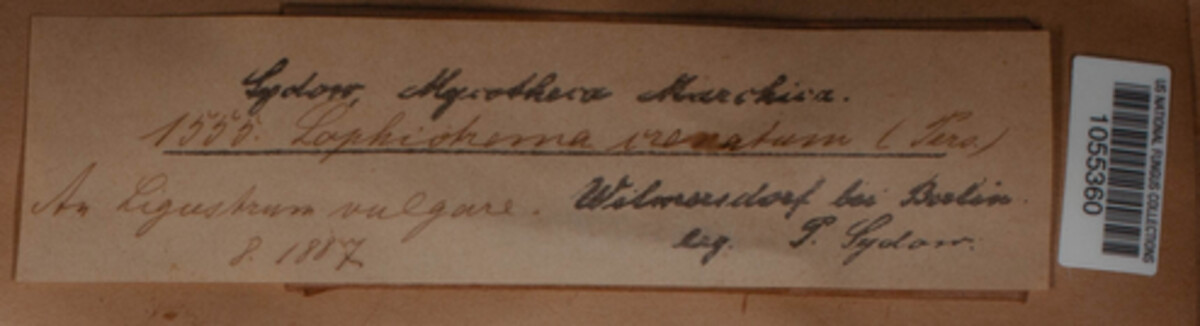 Sydow, Mycotheca Marchica.
1555. Lophiotrema crenatum (Pers.)
An Ligustrum vulgare. Wilmersdorf bei Berlin.
8. 1887 leg. P. Sydow.
US NATIONAL FUNGUS COLLECTIONS
1055360